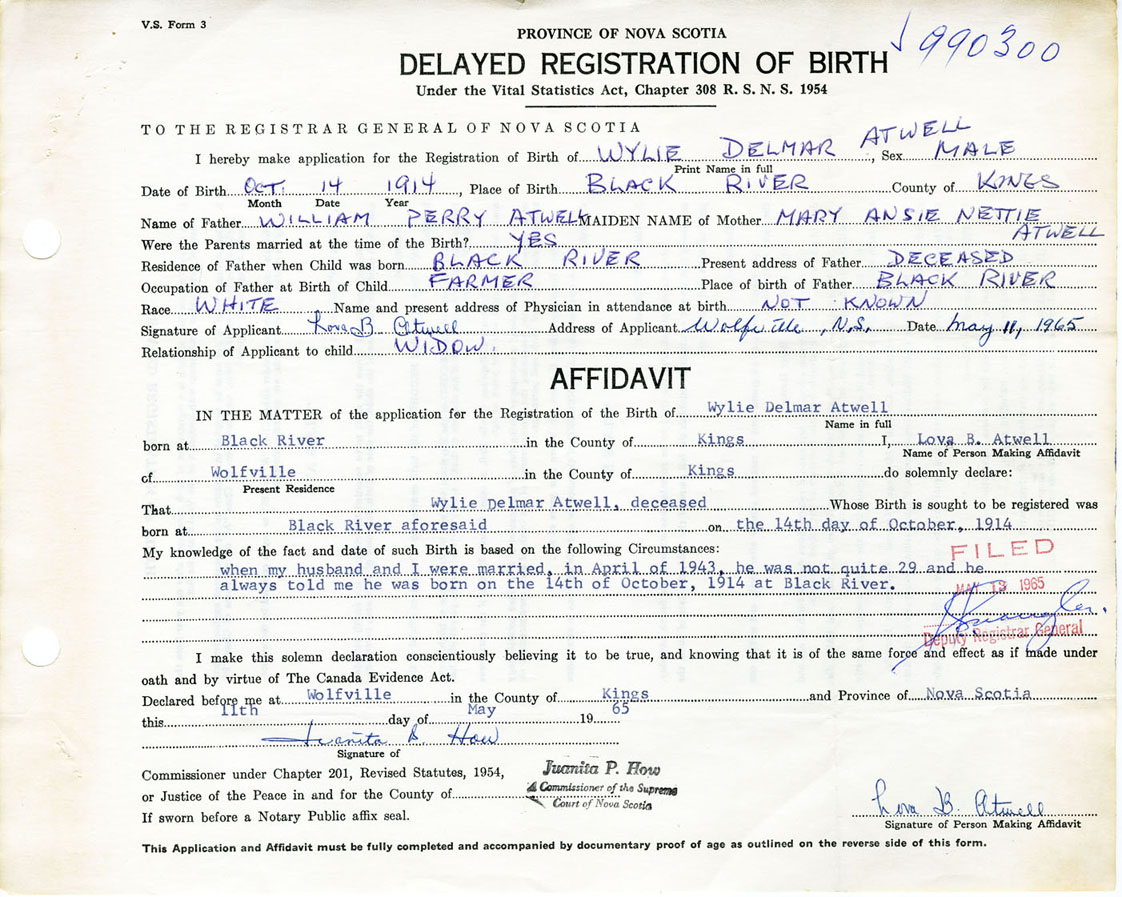 V.S. Form 3
990300
PROVINCE OF NOVA SCOTIA
DELAYED REGISTRATION OF BIRTH
Under the Vital Statistics Act, Chapter 308 R. S. N. S. 1954
TO THE REGISTRAR GENERAL OF NOVA SCOTIA
I hereby make application for the Registration of Birth of WYLIE DELMAR ATWELL, Sex MALE
Print Name in full
Date of Birth OCT. 14 1914, Place of Birth BLACK RIVER County of KINGS
Month Date Year
Name of Father WILLIAM PERRY ATWELL MAIDEN NAME of Mother MARY ANSIE NETTIE ATWELL
Were the Parents married at the time of the Birth? YES
Residence of Father when Child was born BLACK RIVER Present address of Father DECEASED
Occupation of Father at Birth of Child FARMER Place of birth of Father BLACK RIVER
Race WHITE Name and present address of Physician in attendance at birth NOT KNOWN
Signature of Applicant Lova B. Atwell Address of Applicant Wolfville, N.S. Date May 11, 1965
Relationship of Applicant to child WIDOW.
AFFIDAVIT
IN THE MATTER of the application for the Registration of the Birth of Wylie Delmar Atwell
Name in full
born at Black River in the County of Kings I, Lova B. Atwell
Name of Person Making Affidavit
of Wolfville in the County of Kings do solemnly declare:
Present Residence
That Wylie Delmar Atwell, deceased Whose Birth is sought to be registered was
born at Black River aforesaid on the 14th day of October, 1914
My knowledge of the fact and date of such Birth is based on the following Circumstances:
when my husband and I were married, in April of 1943, he was not quite 29 and he
always told me he was born on the 14th of October, 1914 at Black River.
FILED
MAY 13 1965
Deputy Registrar General
I make this solemn declaration conscientiously believing it to be true, and knowing that it is of the same force and effect as if made under
oath and by virtue of The Canada Evidence Act.
Declared before me at Wolfville in the County of Kings and Province of Nova Scotia
this 11th day of May 19 65
Juanita P. How
Signature of
Commissioner under Chapter 201, Revised Statutes, 1954,
or Justice of the Peace in and for the County of
If sworn before a Notary Public affix seal.
Juanita P. How
A Commissioner of the Supreme
Court of Nova Scotia
Lova B. Atwell
Signature of Person Making Affidavit
This Application and Affidavit must be fully completed and accompanied by documentary proof of age as outlined on the reverse side of this form.